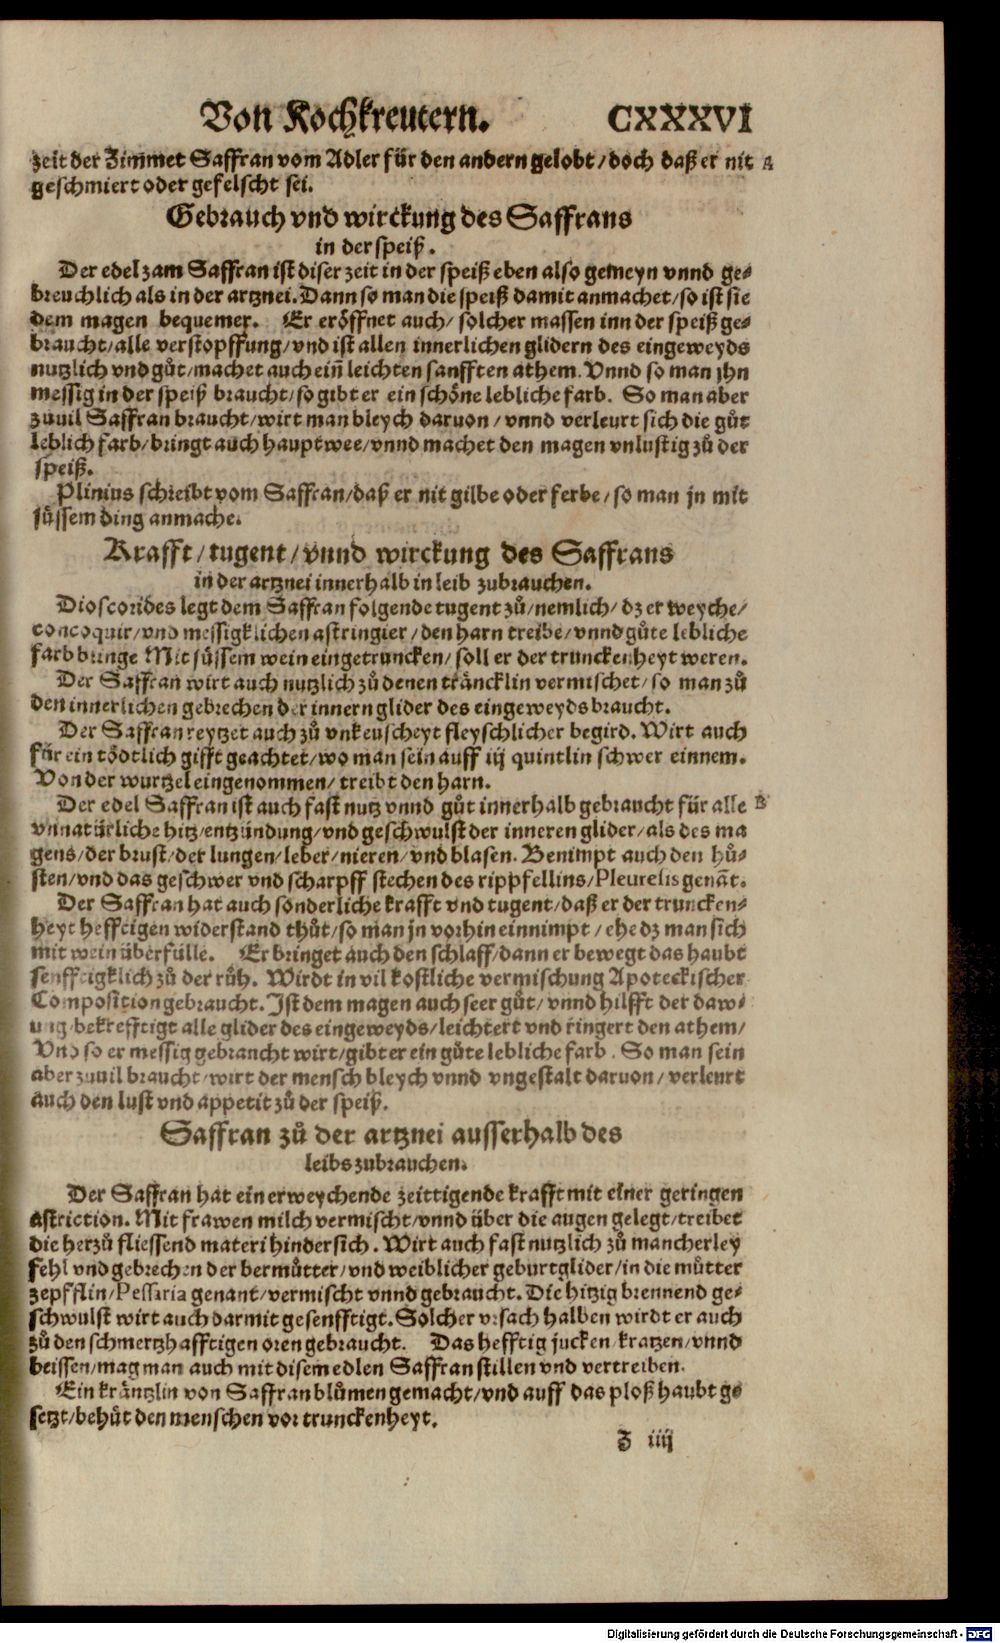 Von Kochkreutern. CXXXVI
zeit der Zimmet Saffran vom Adler für den andern gelobt/ doch daß er nit A
geschmiert oder gefelscht sei.
Gebrauch vnd wirckung des Saffrans
in der speiß.
Der edel zam Saffran ist diser zeit in der speiß eben also gemeyn vnnd ge-
breuchlich als in der artznei. Dann so man die speiß damit anmachet/ so ist sie
dem magen bequemer. Er eröffnet auch/ solcher massen inn der speiß ge-
braucht/ alle verstopffung/ vnd ist allen innerlichen glidern des eingeweyds
nutzlich vnd gůt/ machet auch ein̄ leichten sanfften athem. Vnnd so man jhn
messig in der speiß braucht/ so gibt er ein schöne lebliche farb. So man aber
zuuil Saffran braucht/ wirt man bleych daruon/ vnnd verleurt sich die gůt
leblich farb/ bringt auch hauptwee/ vnnd machet den magen vnlustig zů der
speiß.
Plinius schreibt vom Saffran/ daß er nit gilbe oder ferbe/ so man jn mit
süssem ding anmache.
Krafft/ tugent/ vnnd wirckung des Saffrans
in der artznei innerhalb in leib zubrauchen.
Dioscorides legt dem Saffran folgende tugent zů/ nemlich/ dz er weyche/
concoquir/ vnd messigklichen astringier/ den harn treibe/ vnnd gůte lebliche
farb bringe Mit süssem wein eingetruncken/ soll er der trunckenheyt weren.
Der Saffran wirt auch nutzlich zů denen träncklin vermischet/ so man zů
den innerlichen gebrechen der innern glider des eingeweyds braucht.
Der Saffran reytzet auch zů vnkeuscheyt fleyschlicher begird. Wirt auch
für ein tödtlich gifft geachtet/ wo man sein auff iij quintlin schwer einnem.
Von der wurtzel eingenommen/ treibt den harn.
Der edel Saffran ist auch fast nutz vnnd gůt innerhalb gebraucht für alle B
vnnatürliche hitz/ entzündung/ vnd geschwulst der inneren glider/ als des ma
gens/ der brust/ der lungen/ leber/ nieren/ vnd blasen. Benimpt auch den hů-
sten/ vnd das geschwer vnd scharpff stechen des rippfellins/ Pleuresis genāt.
Der Saffran hat auch sonderliche krafft vnd tugent/ daß er der truncken-
heyt hefftigen widerstand thůt/ so man jn vorhin einnimpt/ ehe dz man sich
mit wein überfülle. Er bringet auch den schlaff/ dann er bewegt das haubt
senfftigklich zů der růh. Wirdt in vil kostliche vermischung Apoteckischer
Composition gebraucht. Ist dem magen auch seer gůt/ vnnd hilfft der daw-
ung/ bekrefftigt alle glider des eingeweyds/ leichtert vnd ringert den athem/
Vnd so er messig gebraucht wirt/ gibt er ein gůte lebliche farb. So man sein
aber zuuil braucht/ wirt der mensch bleych vnnd vngestalt daruon/ verleurt
auch den lust vnd appetit zů der speiß.
Saffran zů der artznei ausserhalb des
leibs zubrauchen.
Der Saffran hat ein erweychende zeittigende krafft mit einer geringen
astriction. Mit frawen milch vermischt/ vnnd über die augen gelegt/ treibet
die herzů fliessend materi hindersich. Wirt auch fast nutzlich zů mancherley
fehl vnd gebrechen der bermůtter/ vnd weiblicher geburtglider/ in die můtter
zepfflin/ Pessaria genant/ vermischt vnnd gebraucht. Die hitzig brennend ge-
schwulst wirt auch darmit gesenfftigt. Solcher vrsach halben wirdt er auch
zů den schmertzhafftigen oren gebraucht. Das hefftig jucken/ kratzen/ vnnd
beissen/ mag man auch mit disem edlen Saffran stillen vnd vertreiben.
Ein kräntzlin von Saffran blůmen gemacht/ vnd auff das ploß haubt ge
setzt/ behůt den menschen vor trunckenheyt.
Z iiij
Digitalisierung gefördert durch die Deutsche Forschungsgemeinschaft - DFG